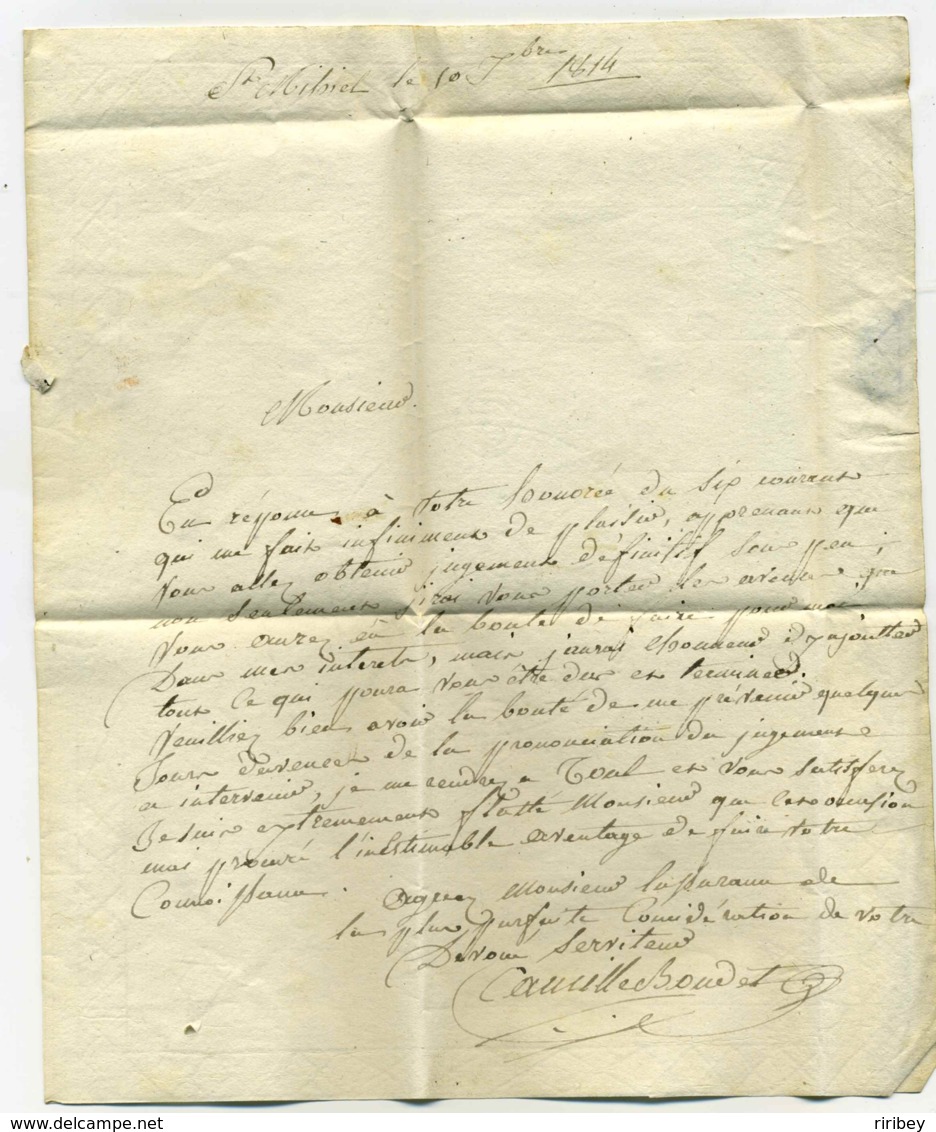 St Mihiel le 10 7bre 1814
Monsieur.
En réponse à votre honorée du six courant
qui me fait infiniment de plaisir, apprenant que
vous allez obtenir jugement définitif sous peu ;
non seulement jirai vous porter les avences que
vous aurez éû la bonté de faire pour moi
Dans mes interets, mais jaurai lhonneur d'y ajoutter
tout ce qui poura vous être dus et terminer.
Veuilliez bien avoir la bonté de me prévenir quelques
Jours d'avences de la prononciation du jugement
a intervenir, je me rendrez a Toul et vous satisferez
Je suis extremement flatté Monsieur que cest occasion
mai procuré l'inestimable aventage de faire votre
Connoissance.
Agreez Monsieur lassurance de
la plus parfaite Considération de votre
Devoué Serviteur
Camille Boudet
riribey